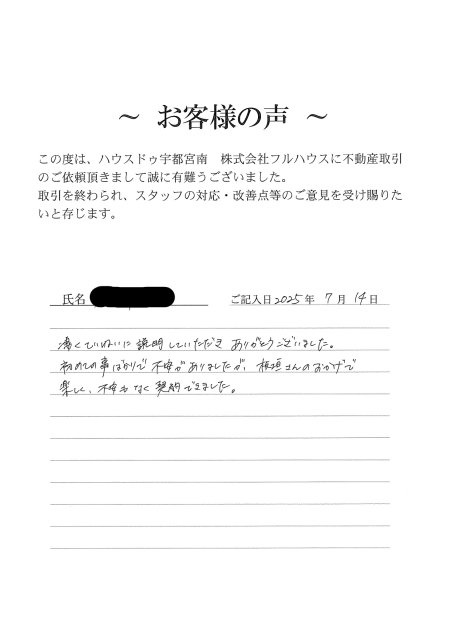 ～ お客様の声 ～
この度は、ハウスドゥ宇都宮南　株式会社フルハウスに不動産取引
のご依頼頂きまして誠に有難うございました。
取引を終わられ、スタッフの対応・改善点等のご意見を受け賜りた
いと存じます。
氏名　ご記入日2025年 7月 14日
凄くていねいに説明していただき ありがとうございました。
初めての事ばかりで不安がありましたが、板垣さんのおかげで
楽しく、不安もなく契約できました。